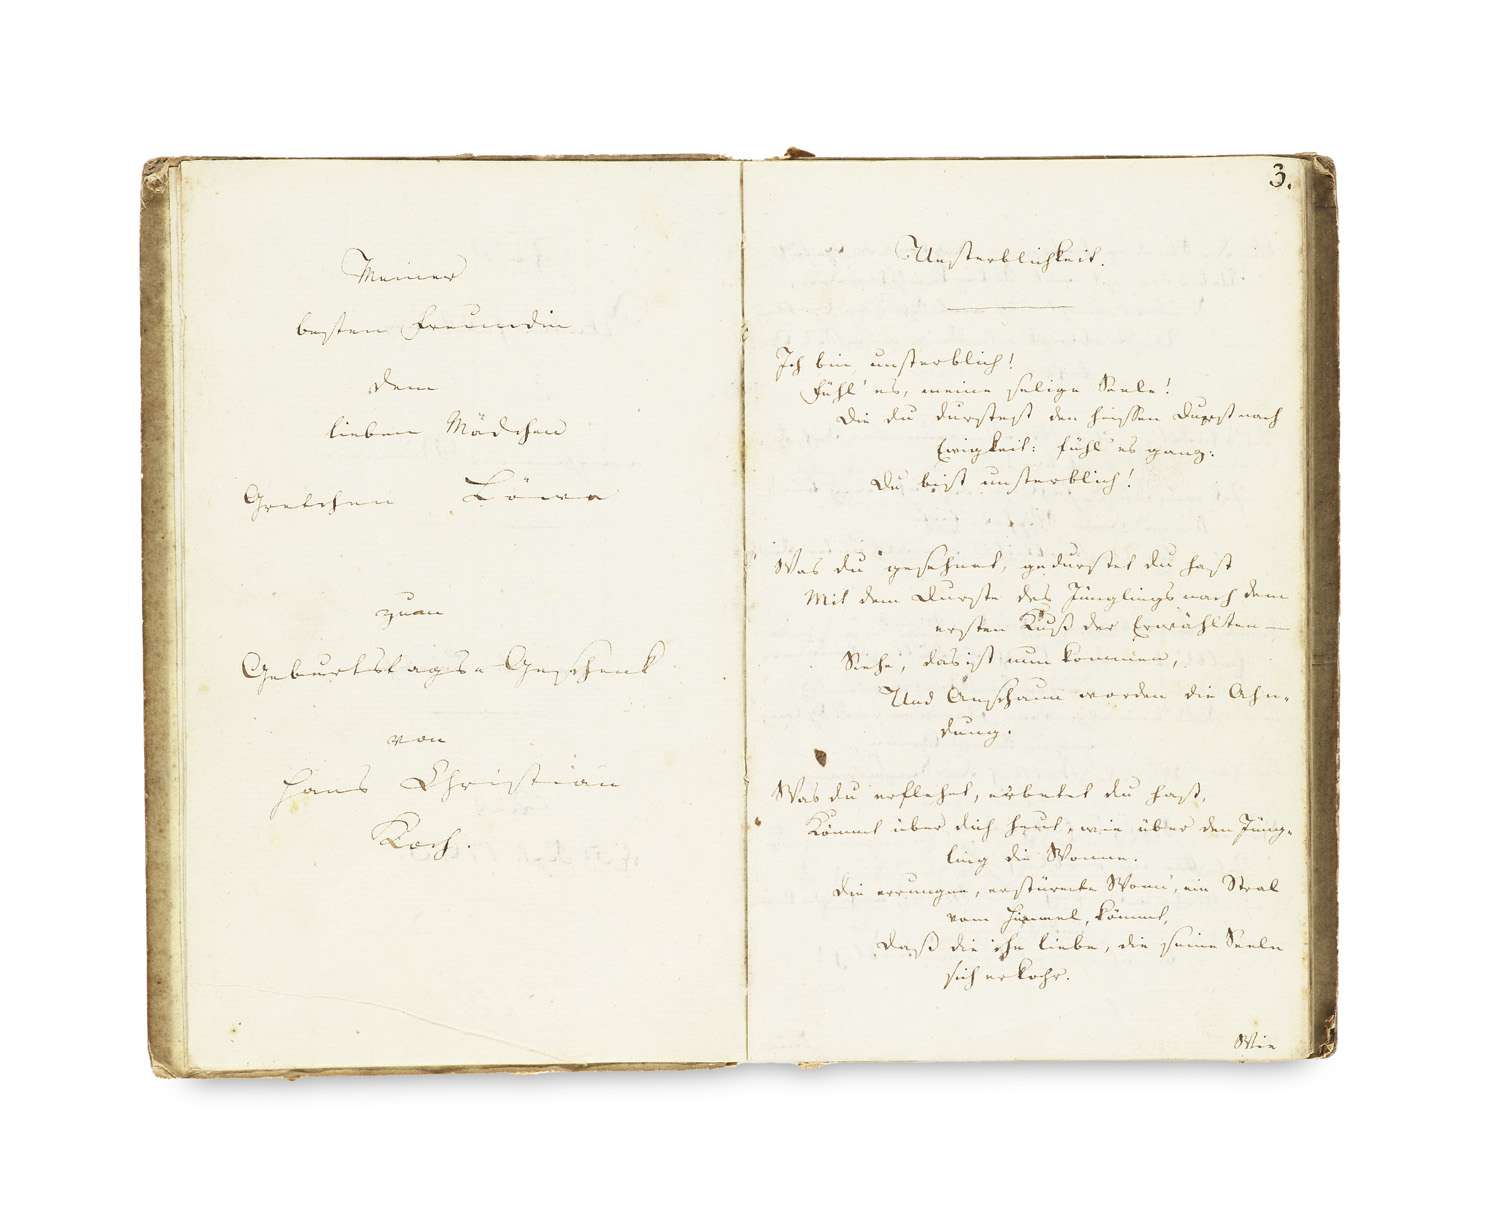 Meiner
besten Freundin
dem
lieben Mädchen
Gretchen Löwe
zum
Geburtstags-Geschenk
von
Hans Christian
Koch.
3.
Unsterblichkeit.
Ich bin unsterblich!
Fühl' es, meine selige Seele!
Die du durstest den heissen Durst nach
Ewigkeit: fühl' es ganz:
Du bist unsterblich!
Was du gesehnet, gedurstet du hast
Mit dem Durste des Jünglings nach dem
ersten Kuß der Erwählten —
Siehe, das ist nun kommen,
Und Anschaun worden die Ahn-
dung.
Was du erflehet, erbetet du hast,
Kömmt über dich heut, wie über den Jüng-
ling die Wonne.
Die errungne, erstürmte Wonn', ein Stral
vom Himmel, kömmt,
Daß die ihn liebe, die seine Seele
sich erkohr.
Wie